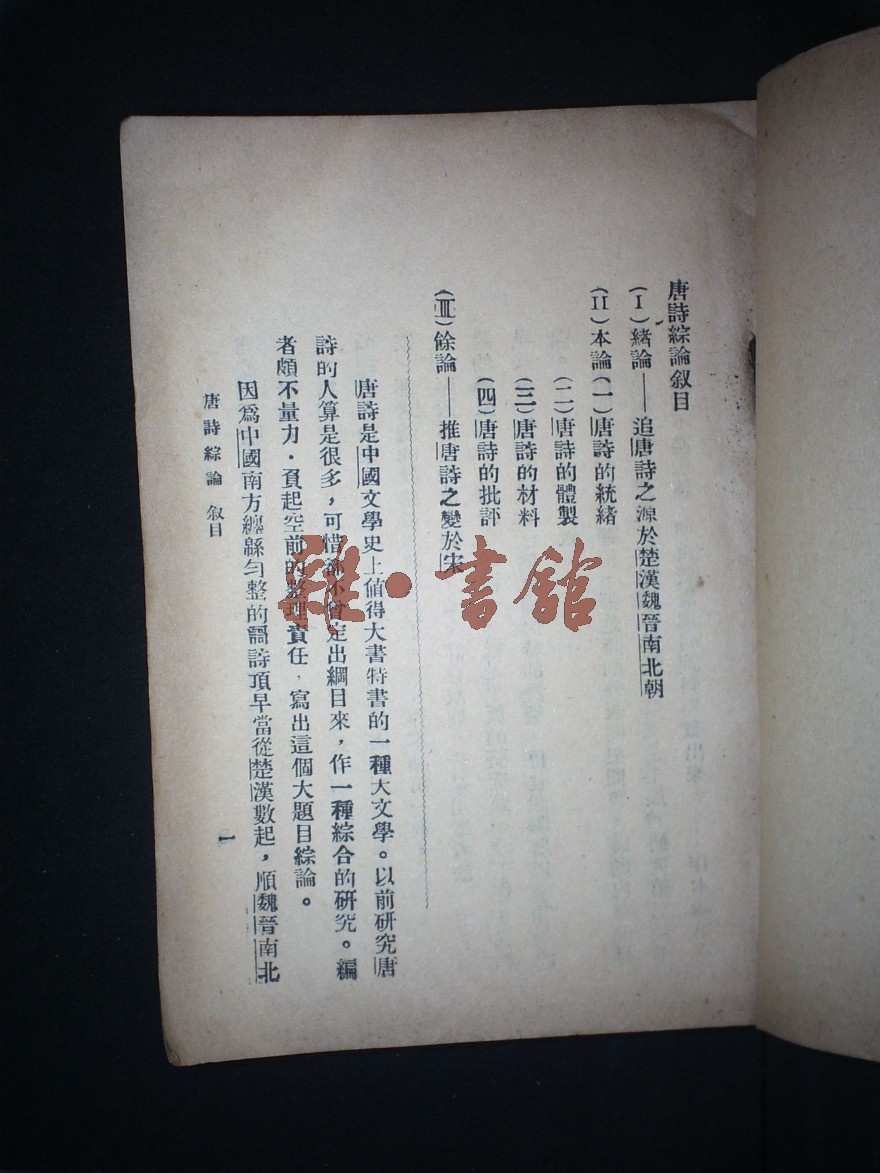 唐詩綜論叙目
(I)緒論——追唐詩之源於楚漢魏晉南北朝
(II)本論(一)唐詩的統緒
(二)唐詩的體製
(三)唐詩的材料
(四)唐詩的批評
(III)餘論——推唐詩之變於宋
唐詩是中國文學史上値得大書特書的一種大文學。以前研究唐
詩的人算是很多，可惜都不曾定出綱目來，作一種綜合的研究。編
者頗不量力，負起空前的整理責任，寫出這個大題目綜論。
因爲中國南方纏緜勻整的詩頂早當從楚漢數起，順魏晉南北
唐詩綜論 叙目
一
雜·書館